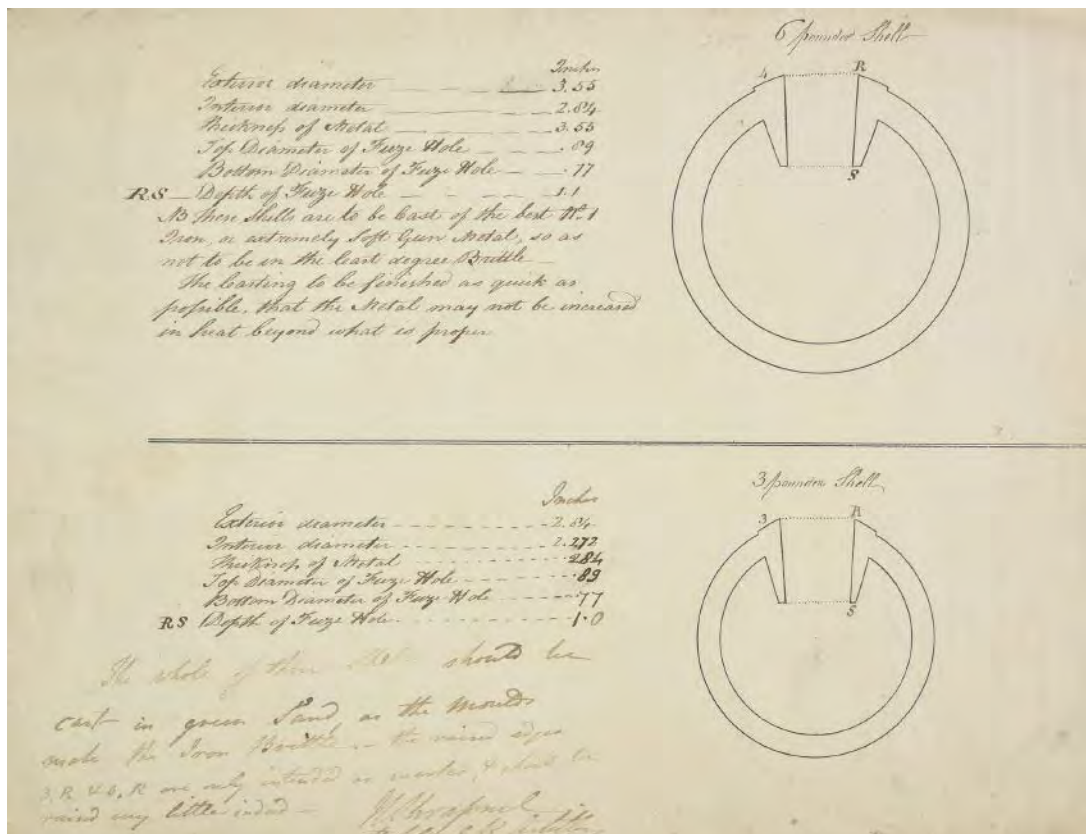 6 pounder Shell
Inches
Exterior diameter 3.55
Interior diameter 2.84
thickness of Metal 3.55
Top Diameter of Fuze Hole .89
Bottom Diameter of Fuze Hole .77
RS Depth of Fuze Hole 1.1
NB these Shells are to be Cast of the best No. 1
Iron, or extremely Soft Gun Metal, so as
not to be in the least degree Brittle
The Casting to be finished as quick as
possible, that the Metal may not be increased
in heat beyond what is proper
4 R
S
3 pounder Shell
Inches
Exterior diameter 2.84
Interior diameter 2.272
thickness of Metal .284
Top Diameter of Fuze Hole .89
Bottom Diameter of Fuze Hole .77
RS Depth of Fuze Hole 1.0
3 R
S
The whole of these should be
cast in green Sand, as the moulds
make the Iron Brittle the raised edges
3.R are only intended as &
raised very little indeed
H Shrapnel